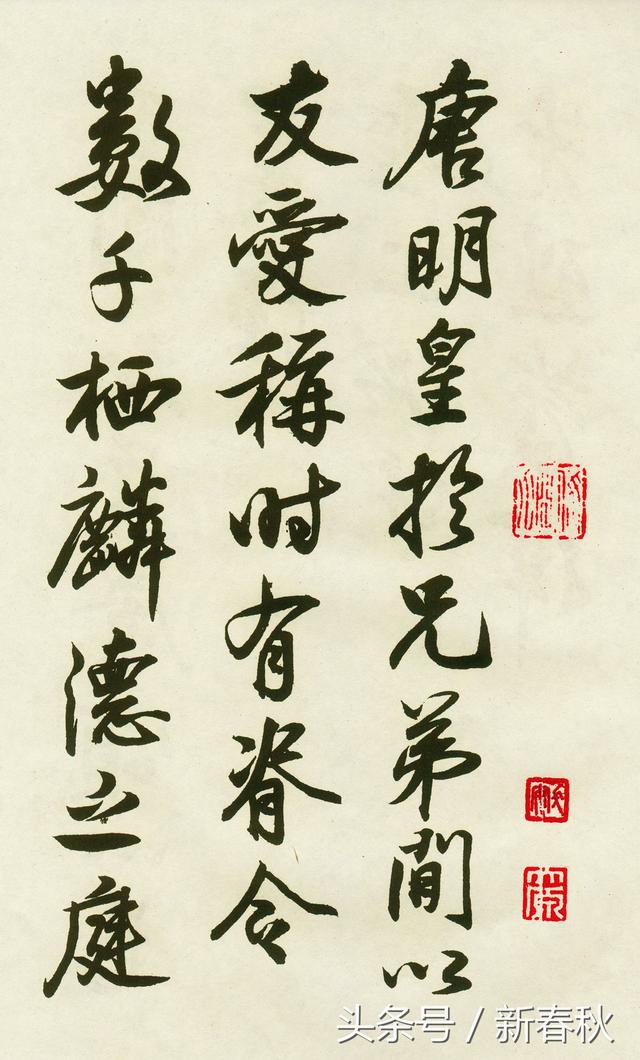 唐明皇於兄弟間以
友愛稱时有脊令
數千栖麟德之庭
头条号 / 新春秋